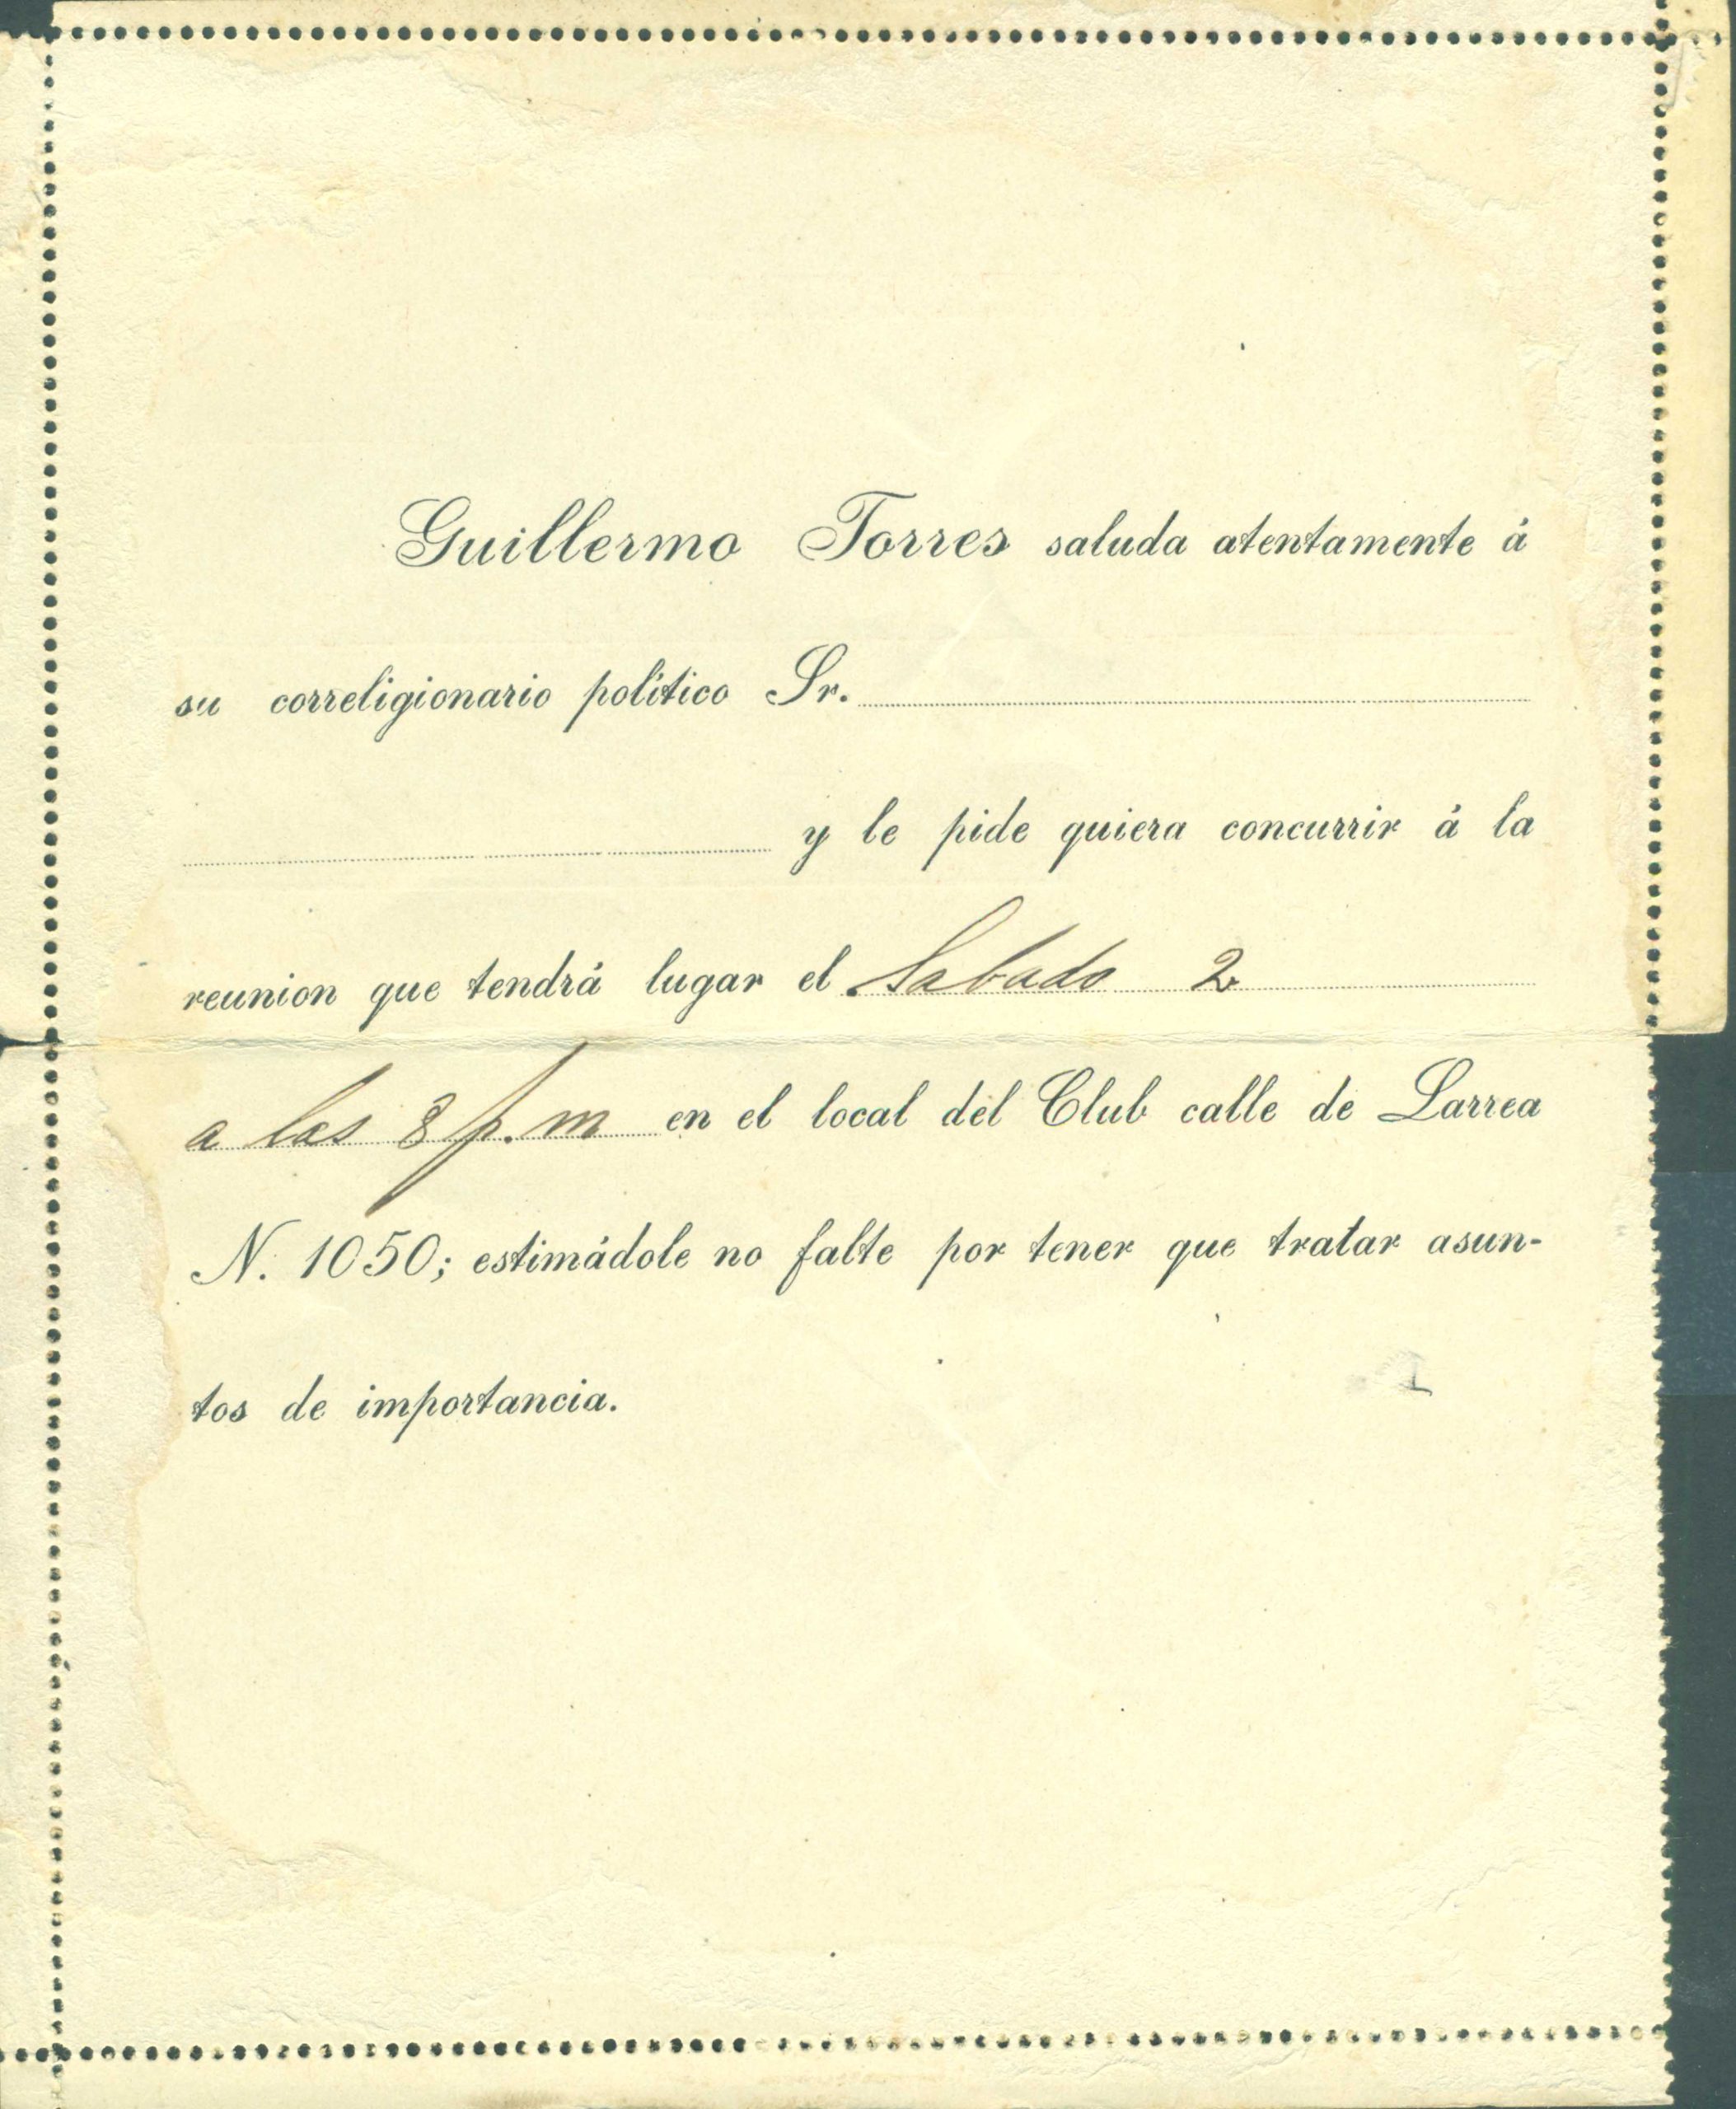 Guillermo Torres saluda atentamente á
su correligionario político Sr.
y le pide quiera concurrir á la
reunion que tendrá lugar el Sabado 2
a las 8 p.m en el local del Club calle de Larrea
N. 1050; estimádole no falte por tener que tratar asun-
tos de importancia.